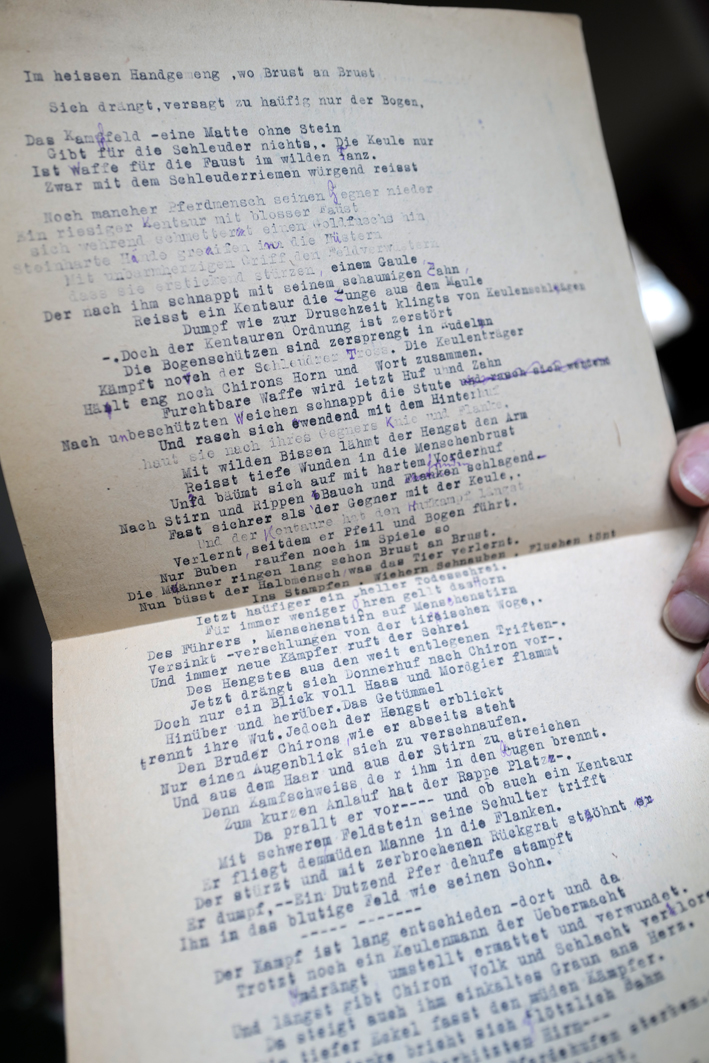 Im heissen Handgemeng ,wo Brust an Brust
Sich drängt,versagt zu haüfig nur der Bogen.
Das Kampffeld -eine Matte ohne Stein
Gibt für die Schleuder nichts,. Die Keule nur
Ist Waffe für die Faust im wilden Tanz.
Zwar mit dem Schleuderriemen würgend reisst
Noch mancher Pferdmensch seinen Gegner nieder
Ein riesiger Kentaur mit blosser Faust
sich wehrend schmettert einen Goldfuchs hin
steinharte Hände greifen in die Nüstern
Mit unbarmherzigen Griff den Feldverwustern
dass sie erstickend stürzen, einem Gaule,
Der nach ihm schnappt mit seinem schaumigen Zahn,
Reisst ein Kentaur die Zunge aus dem Maule
Dumpf wie zur Druschzeit klingts von Keulenschlägen
-.Doch der Kentauren Ordnung ist zerstört
Die Bogenschützen sind zersprengt in Rudeln
Kämpft noch der Schleudrer Tross. Die Keulenträger
Hält eng noch Chirons Horn und Wort zusammen.
Furchtbare Waffe wird ietzt Huf uhnd Zahn
Nach unbeschützten Weichen schnappt die Stute und rasch sich wehrend
Und rasch sich ewendend mit dem Hinterhuf
haut sie nach ihres Gegners Knie und Flanke.
Mit wilden Bissen lähmt der Hengst den Arm
Reisst tiefe Wunden in die Menschenbrust
Und bäumt sich auf mit hartem Vorderhuf
Nach Stirn und Rippen Bauch und Flanken schlagend.
Fast sichrer als der Gegner mit der Keule,.
Und der Kentaure hat den Hufkampf längst
Verlernt,seitdem er Pfeil und Bogen führt.
Nur Buben raufen noch im Spiele so
Die Männer ringen lang schon Brust an Brust.
Nun büsst der Halbmensch,was das Tier verlernt.
Ins Stampfen , Wiehern Schnauben , Fluchen tönt
Ietzt haüfiger ein heller Todesschrei.
Für immer weniger Ohren gellt das Horn
Des Führers , Menschenstirn auf Menschenstirn
Versinkt -verschlungen von der tierischen Woge,.
Und immer neue Kämpfer ruft der Schrei
Des Hengstes aus den weit entlegenen Triften-.
Jetzt drängt sich Donnerhuf nach Chiron vor-.
Doch nur ein Blick voll Haas und Mordgier flammt
Hinüber und herüber.Das Getümmel
trennt ihre Wut.Jedoch der Hengst erblickt
Den Bruder Chirons wie er abseits steht
Nur einen Augenblick sich zu verschnaufen.
Und aus dem Haar und aus der Stirn zu streichen
Denn Kamfschweiss de r ihm in den Augen brennt.
Zum kurzen Anlauf hat der Rappe Platz-.
Da prallt er vor---- und ob auch ein Kentaur
Mit schwerem Feldstein seine Schulter trifft
Er fliegt demmüden Manne in die Flanken.
Der stürzt und mit zerbrochenen Rückgrat stöhnt er
Er dumpf,--Ein Dutzend Pfer dehufe stampft
Ihn in das blutige Feld wie seinen Sohn.
----- -------
Der Kampf ist lang entschieden -dort und da
Trotzt noch ein Keulenmann der Uebermacht
Umdrängt, umstellt ermattet und verwundet.
Und längst gibt Chiron Volk und Schlacht verloren
Da steigt auch ihm einkaltes Graun ans Herz.
tiefer Eckel fasst den müden Kämpfer.
bricht sich plötzlich Bahn
Hirn---
sterben.